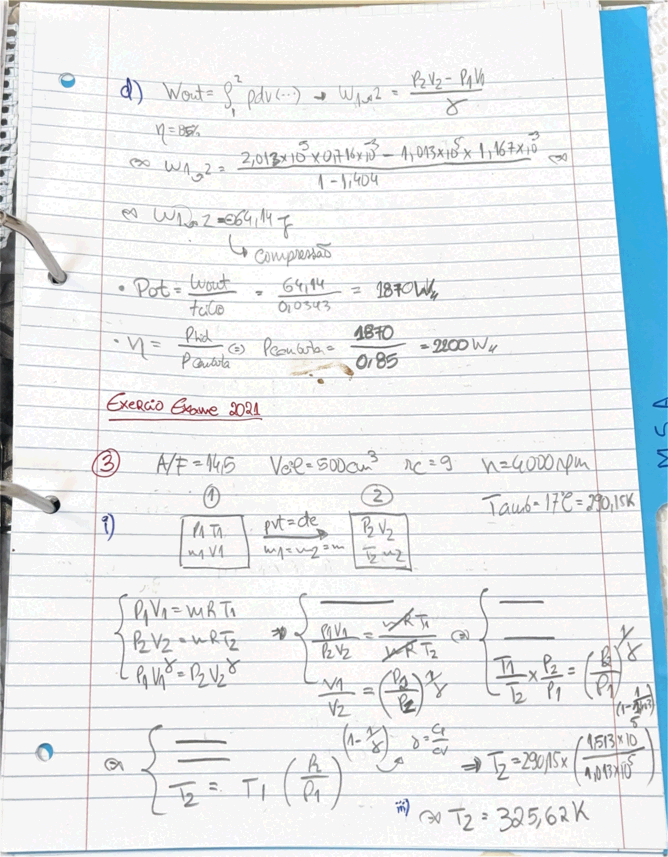 d) Wout = ∫₁² pdv(...) → W1→2 = (P2V2 - P1V1)/γ
η = 85%
⇔ W1→2 = (2,013×10⁵ × 0,716×10⁻³ - 1,013×10⁵ × 1,167×10⁻³)/(1-1,404) ⇔
⇔ W1→2 = -64,14 J
↳ compressão
• Pot = Wout/tciclo = 64,14/0,0343 = 1870W//
• η = Phid/Pcambota ⇔ Pcambota = 1870/0,85 = 2200W//
Exercio Exame 2021
③ A/F = 14,5 Vcil = 500cm³ rc = 9 n = 4000rpm
Tamb = 17°C = 290,15K
① ②
i) P1 T1 pvγ = cte P2 V2
m1 V1 m1 = m2 = m T2 m2
{ P1V1 = mRT1
P2V2 = mRT2
P1V1^γ = P2V2^γ
⇒ { P1V1/P2V2 = mRT1/mRT2
V1/V2 = (P2/P2)^(1/γ)
⇔ { T1/T2 × P2/P1 = (P2/P1)^(1/γ)
⇔ { T2 = T1 (P2/P1)^(1-1/γ) γ = cp/cv
⇒ T2 = 290,15 × (1,513×10⁵/1,013×10⁵)
iii) ⇔ T2 = 325,62K
MSA